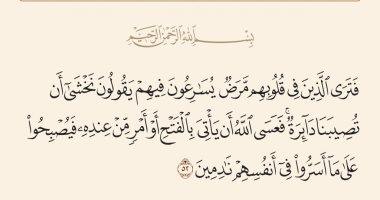 بِسْمِ ٱللَّهِ ٱلرَّحْمَٰنِ ٱلرَّحِيمِ
فَتَرَى ٱلَّذِينَ فِى قُلُوبِهِم مَّرَضٌ يُسَٰرِعُونَ فِيهِمْ يَقُولُونَ نَخْشَىٰٓ أَن
تُصِيبَنَا دَآئِرَةٌ ۚ فَعَسَى ٱللَّهُ أَن يَأْتِىَ بِٱلْفَتْحِ أَوْ أَمْرٍ مِّنْ عِندِهِۦ فَيُصْبِحُوا۟
عَلَىٰ مَآ أَسَرُّوا۟ فِىٓ أَنفُسِهِمْ نَٰدِمِينَ ٥٢